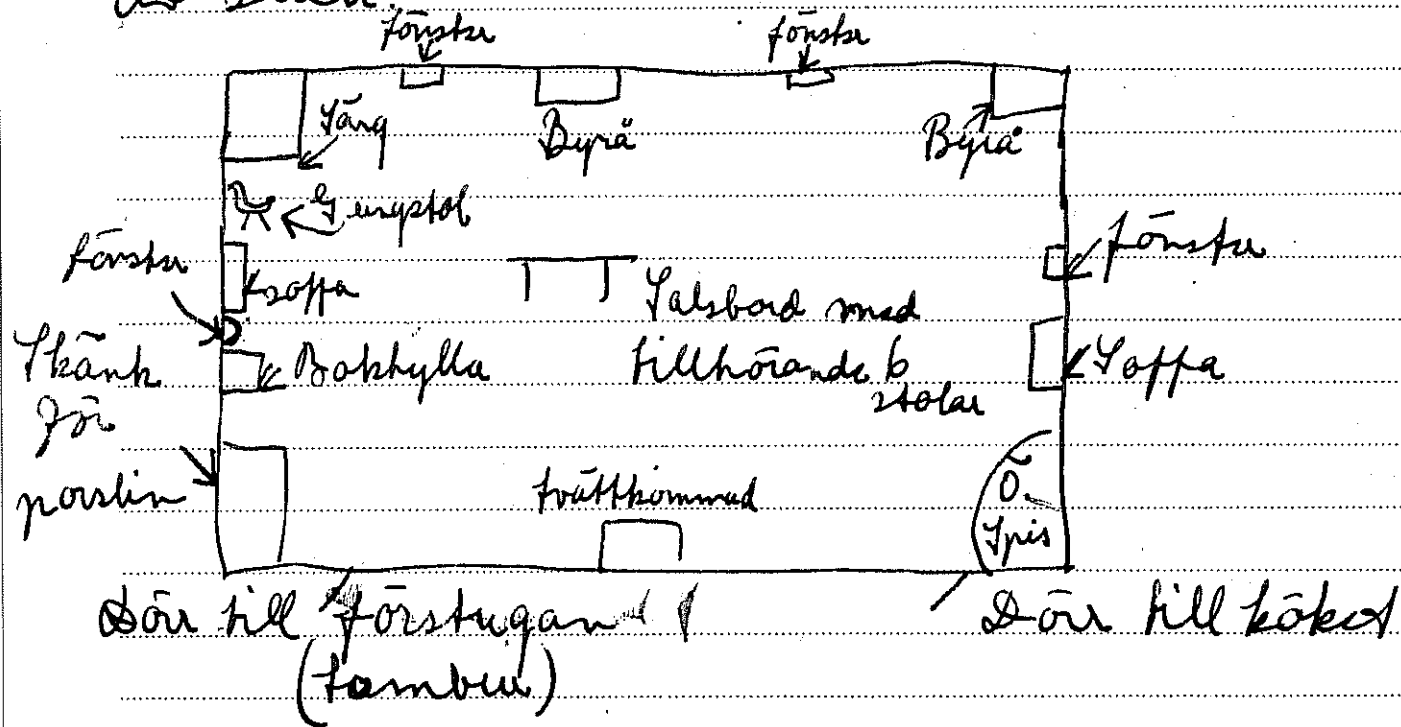 fönster
fönster
Säng
Byrå
Byrå
Gungstol
fönster
soffa
fönster
Salsbord med
tillhörande 6
stolar
Skänk
för
porslin
Bokhylla
Soffa
tvättkommod
Ö.
Spis
Dörr till förstugan
(tambur)
Dörr till köket